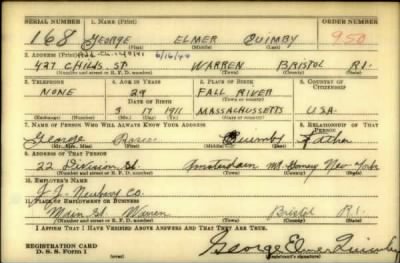 SERIAL NUMBER 1. NAME (Print) ORDER NUMBER
168 GEORGE ELMER QUIMBY 950
(First) (Middle) (Last)
2. ADDRESS (Print) 6/16/44
427 CHILDS ST WARREN BRISTOL R.I.
(Number and street or R. F. D. number) (Town) (County) (State)
3. TELEPHONE 4. AGE IN YEARS 5. PLACE OF BIRTH 6. COUNTRY OF CITIZENSHIP
NONE 29 FALL RIVER
DATE OF BIRTH (Town or county)
3 17 1911 MASSACHUSSETTS U.S.A.
(Exchange) (Number) (Mo.) (Day) (Yr.) (State or country)
7. NAME OF PERSON WHO WILL ALWAYS KNOW YOUR ADDRESS 8. RELATIONSHIP OF THAT PERSON
George Quimby Father
(Mr., Mrs., Miss) (First) (Middle) (Last)
9. ADDRESS OF THAT PERSON
22 Division St. Amsterdam New York
(Number and street or R. F. D. number) (Town) (County) (State)
10. EMPLOYER'S NAME
Co.
11. PLACE OF EMPLOYMENT OR BUSINESS
Main St. Warren Bristol R.I.
(Number and street or R. F. D. number) (Town) (County) (State)
I AFFIRM THAT I HAVE VERIFIED ABOVE ANSWERS AND THAT THEY ARE TRUE.
REGISTRATION CARD
D. S. S. Form 1 (over) George Elmer Quimby
(Registrant's signature)